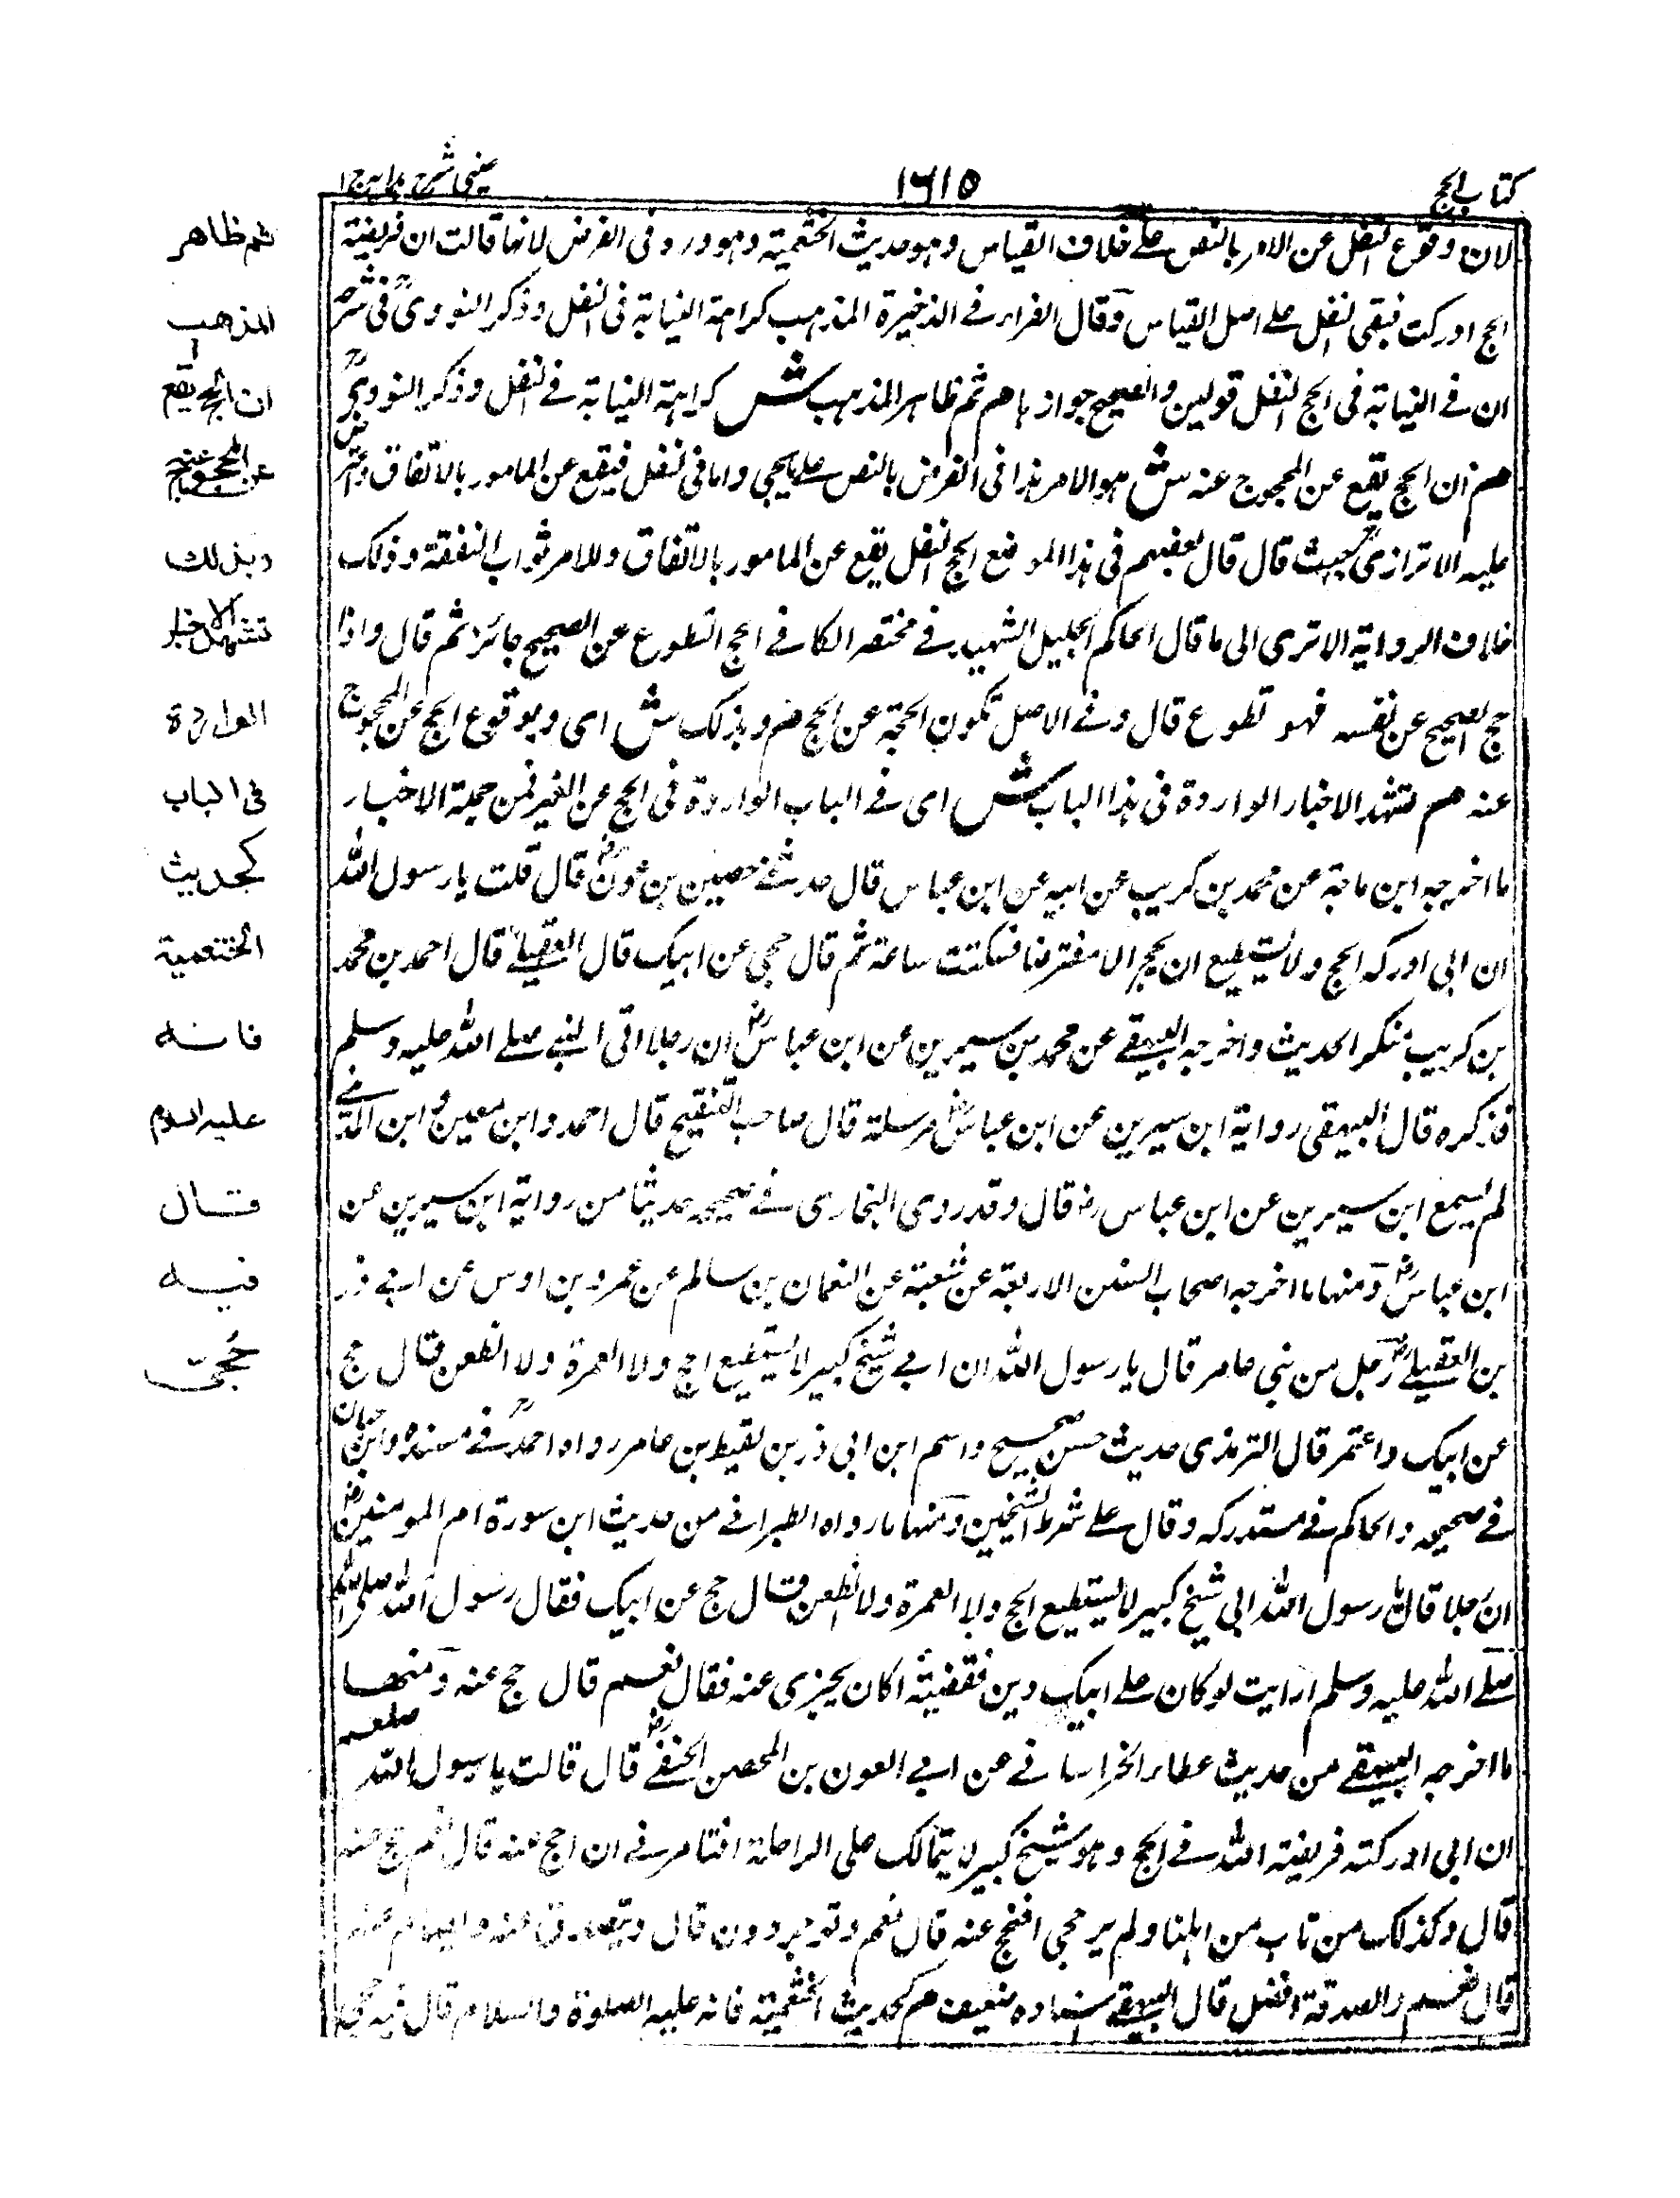 كتاب الحج
١٦١٥
عينى شرح هدايه ج ١
لان وقوع النفل عن الامر بالنص على خلاف القياس وهو حديث الخثعمية وهو ورد فى الفرض لانها قالت ان فريضة
الحج ادركت فبقى النفل على اصل القياس وقال القرا فى الذخيرة المذهب كراهة النيابة فى النفل وذكر النووىؒ فى شرح
ان فى النيابة فى الحج النفل قولين والصحيح جوازها هم ثم ظاهر المذهب ش كراهة النيابة فى النفل وذكر النووىؒ
هم ان الحج يقع عن المحجوج عنه ش هو الامر هذا فى الفرض بالنص على ما يجى واما فى النفل فيقع عن المامور بالاتفاق واعترض
عليه الاترازىؒ حيث قال قال بعضهم فى هذا الموضع الحج النفل يقع عن المامور بالاتفاق وللامر ثواب النفقة وذلك
خلاف الرواية الا ترى الى ما قال الحاكم الجليل الشهيد فى مختصر الكافى الحج التطوع عن الصحيح جائز ثم قال واذا
حج الصحيح عن نفسه فهو تطوع قال وفى الاصل تكون الحجة عن الحج هم وبذلك ش اى وبوقوع الحج عن المحجوج
عنه هم تشهد الاخبار الواردة فى هذا الباب ش اى فى الباب الواردة فى الحج عن الغير فمن جملة الاخبار
ما اخرجه ابن ماجة عن محمد بن كريب عن ابيه عن ابن عباس قال حدثنى حصين بن عوفؓ قال قلت يا رسول الله
ان ابى ادركه الحج ولا يستطيع ان يحج الا مفترضا فسكتت ساعة ثم قال حجى عن ابيك قال العقيلى قال احمد بن محمد
بن كريب منكر الحديث واخرجه البيهقى عن محمد بن سيرين عن ابن عباسؓ ان رجلا اتى النبى صلى الله عليه وسلم
فذكره قال البيهقى رواية ابن سيرين عن ابن عباسؓ مرسلة قال صاحب التنقيح قال احمد وابن معين وابن المدينى
لم يسمع ابن سيرين عن ابن عباس رض قال وقد روى البخارى فى صحيحه حديثا من رواية ابن سيرين عن
ابن عباسؓ ومنها ما اخرجه اصحاب السنن الاربعة عن شعبة عن النعمان بن سالم عن عمرو بن اوس عن ابى ذر
بن العقيلىؓ رجل من بنى عامر قال يا رسول الله ان ابى شيخ كبير لا يستطيع الحج ولا العمرة ولا الظعن قال حج
عن ابيك واعتمر قال الترمذى حديث حسن صحيح واسم ابن ابى ذر بن لقيط بن عامر رواه احمدؒ فى مسنده وابن حبان
فى صحيحه والحاكم فى مستدركه وقال على شرط الشيخين ومنها ما رواه الطبرانى من حديث ابن سورة ام المومنينؓ
ان رجلا قال يا رسول الله ابى شيخ كبير لا يستطيع الحج ولا العمرة ولا الظعن قال حج عن ابيك فقال رسول الله
صلى الله عليه وسلم ارايت لو كان على ابيك دين فقضيته اكان يجزى عنه فقال نعم قال حج عنه ومنها
ما اخرجه البيهقى من حديث عطاء الخراسانى عن ابى العون بن المحصن الحنفىؓ قال قالت يا رسول الله صلعم
ان ابى ادركته فريضة الله فى الحج وهو شيخ كبير لا يتمالك على الراحلة افتامرنى ان احج عنه قال نعم حج عنه
قال وكذلك من تاب من اهلنا ولم يرحجى افنحج عنه قال نعم وتوجردون قال ويتصدق عنه ويصام عنه
قال نعم والصدقة افضل قال البيهقى اسناده ضعيف هم كحديث الخثعمية فانه عليه الصلوة والسلام قال فيه حجى
ثم ظاهر
المذهب
ان الحج يقع
عن المحجوج عنه
وبذلك
تشهد الاخبار
الواردة
فى الباب
كحديث
الخثعمية
فانه
عليه السلام
قال
فيه
حُجّى